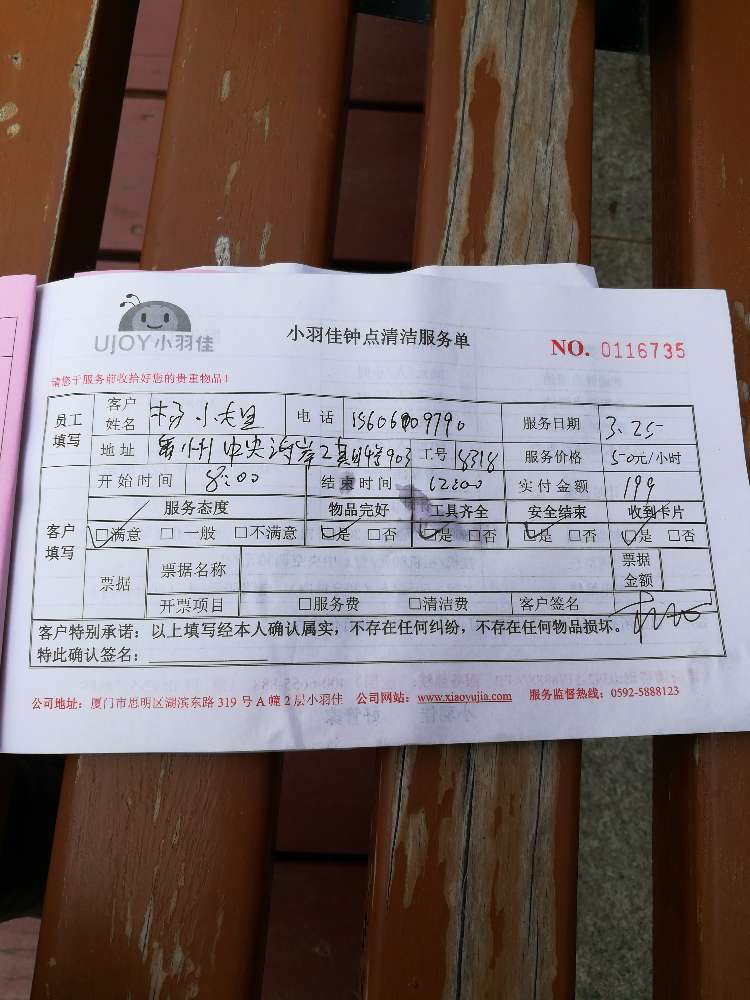 UJOY小羽佳
小羽佳钟点清洁服务单
NO. 0116735
请您于服务前收拾好您的贵重物品！
员工填写 客户姓名 杨小姐 电话 15606909790 服务日期 3.25
地址 中央海岸2 903 工号 8318 服务价格 50元/小时
客户填写 开始时间 8:00 结束时间 12:00 实付金额 199
服务态度 物品完好 工具齐全 安全结束 收到卡片
□满意 □一般 □不满意 □是 □否 □是 □否 □是 □否 □是 □否
票据 票据名称 票据金额
开票项目 □服务费 □清洁费 客户签名
客户特别承诺：以上填写经本人确认属实，不存在任何纠纷，不存在任何物品损坏。
特此确认签名：
公司地址：厦门市思明区湖滨东路 319 号 A 幢 2 层小羽佳 公司网站：www.xiaoyujia.com 服务监督热线：0592-5888123